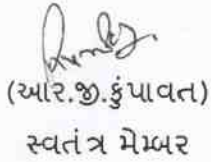 (આર.જી.કુંપાવત)
સ્વતંત્ર મેમ્બર